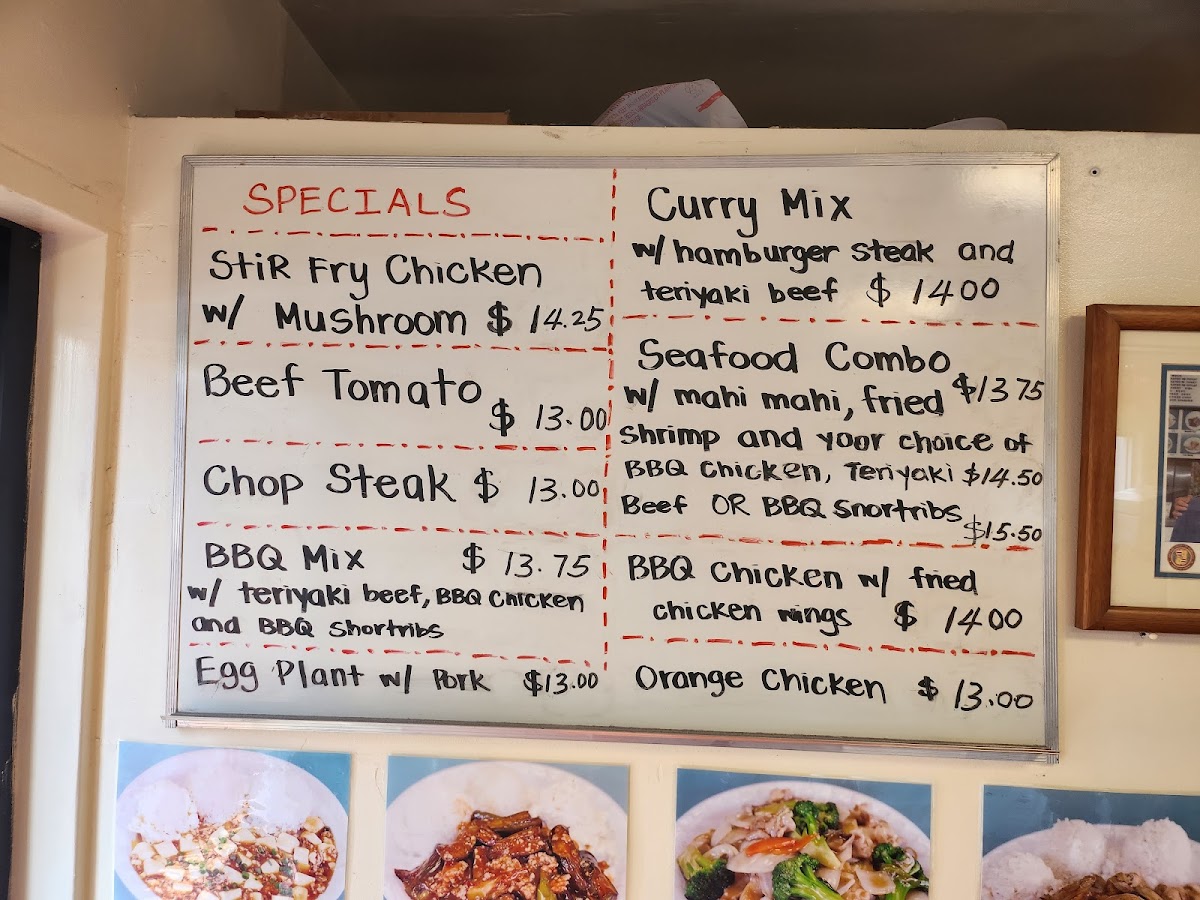 SPECIALS
Stir Fry Chicken
w/ Mushroom $ 14.25
Beef Tomato
$ 13.00
Chop Steak $ 13.00
BBQ Mix $ 13.75
w/ teriyaki beef, BBQ Chicken
and BBQ Shortribs
Egg Plant w/ Pork $13.00
Curry Mix
w/ hamburger steak and
teriyaki beef $ 1400
Seafood Combo
w/ mahi mahi, fried $1375
Shrimp and your choice of
BBQ Chicken, Teriyaki $14.50
Beef OR BBQ Shortribs
$15.50
BBQ Chicken w/ fried
chicken wings $ 1400
Orange Chicken $ 13.00